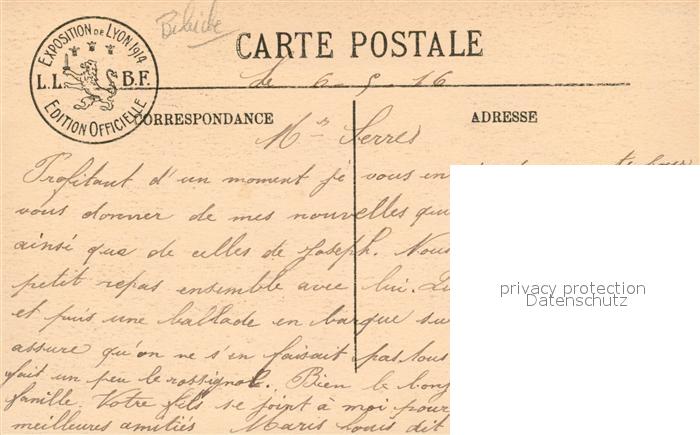 EXPOSITION DE LYON 1914
L.L. B.F.
EDITION OFFICIELLE
CARTE POSTALE
le 6-5-16
CORRESPONDANCE
ADRESSE
Mr Serres
Profitant d'un moment je vous en
vous donner de mes nouvelles qui
ainsi que de celles de Joseph. Nous
petit repas ensemble avec lui.
et puis une ballade en barque su
assure qu'on ne s'en faisait pas tous
fait un peu le rossignol. Bien le bonj
famille. Votre fils se joint à moi pour
meilleures amitiés Maris Louis dit
privacy protection
Datenschutz